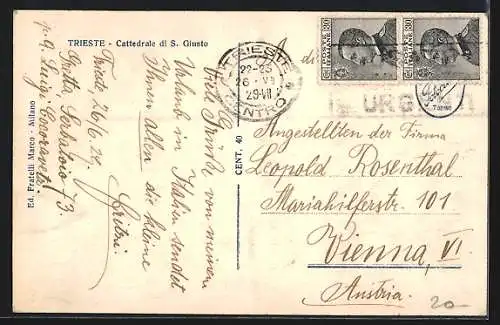 TRIESTE - Cattedrale di S. Giusto
Ed. Fratelli Marco - Milano
CENT. 40
TRIESTE
22-23
26 · VI
1929 · VII
CENTRO
URG
TORINO
Viele Grüsse von meinem
Urlaub in Italien sendet
Ihnen allen die kleine
Fritzi.
Trieste, 26/6. 29.
Grotta, Serbatoio 73
p. a. Luigi
A di
Angestellten der Firma
Leopold Rosenthal
Mariahilferstr. 101
Vienna, VI.
Austria.
20